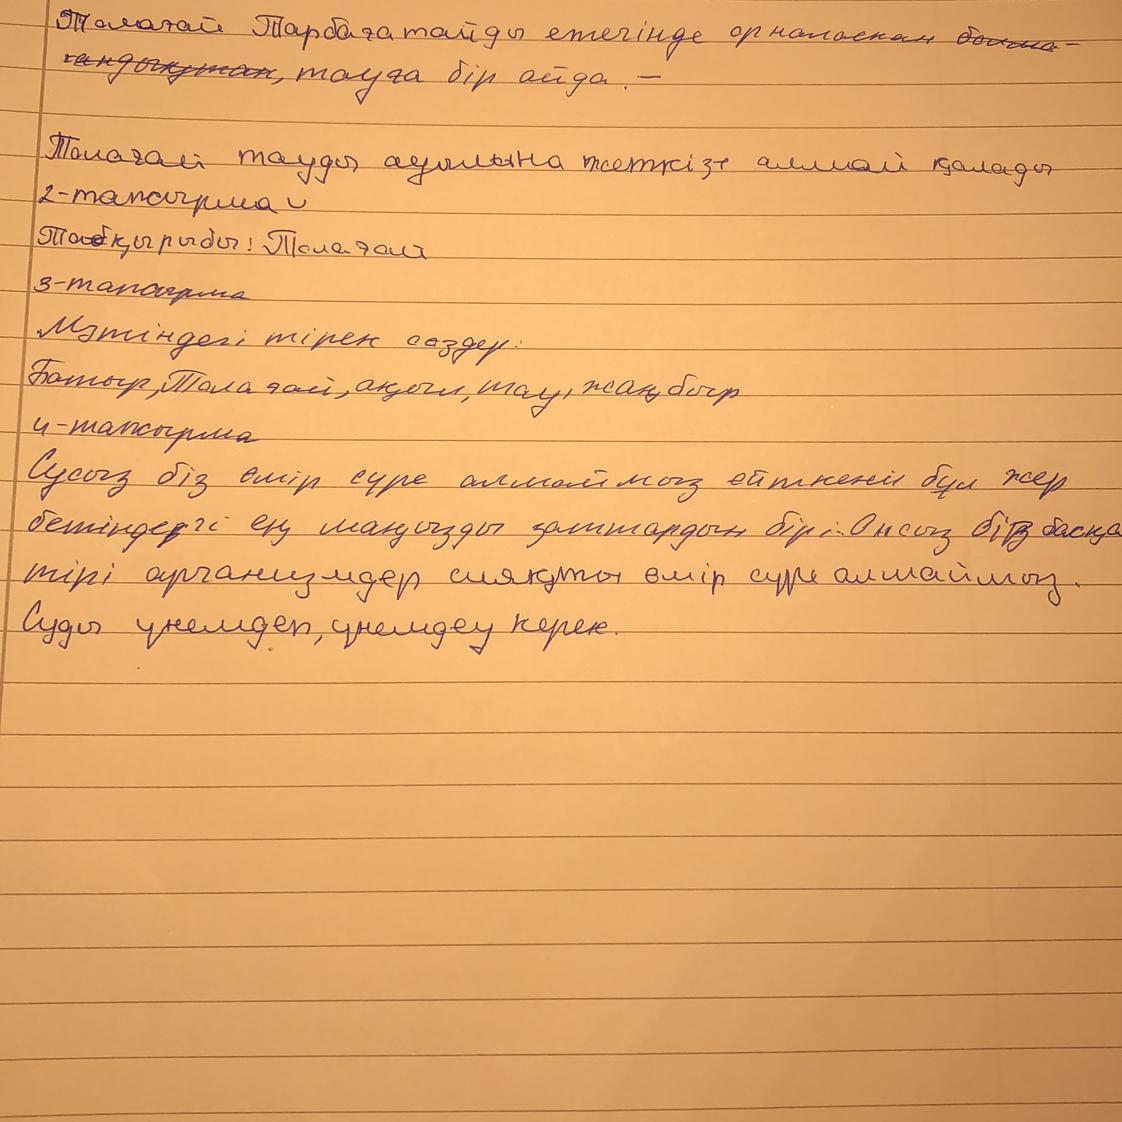 Толағай Тарбағатайды етегінде орналаскан болма-
ғандықтан, тауға бір айда. –
Толағай тауды ауылына жеткізе алмай қалады
2-тапсырма
Тақырыбы: Толағай
3-тапсырма
Мәтіндегі тірек сөздер:
Батыр, Толағай, ақыл, тау, жаңбыр
4-тапсырма
Сусыз біз өмір сүре алмаймыз өйткені бұл жер
бетіндегі ең маңызды заттардын бірі. Онсыз біз басқа
тірі арганизмдер сияқты өмір сүре алмаймыз.
Суды үнемдеп, үнемдеу керек.